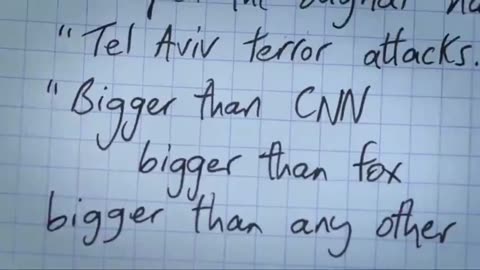 the
"Tel Aviv terror attacks.
"Bigger than CNN
bigger than fox
bigger than any other